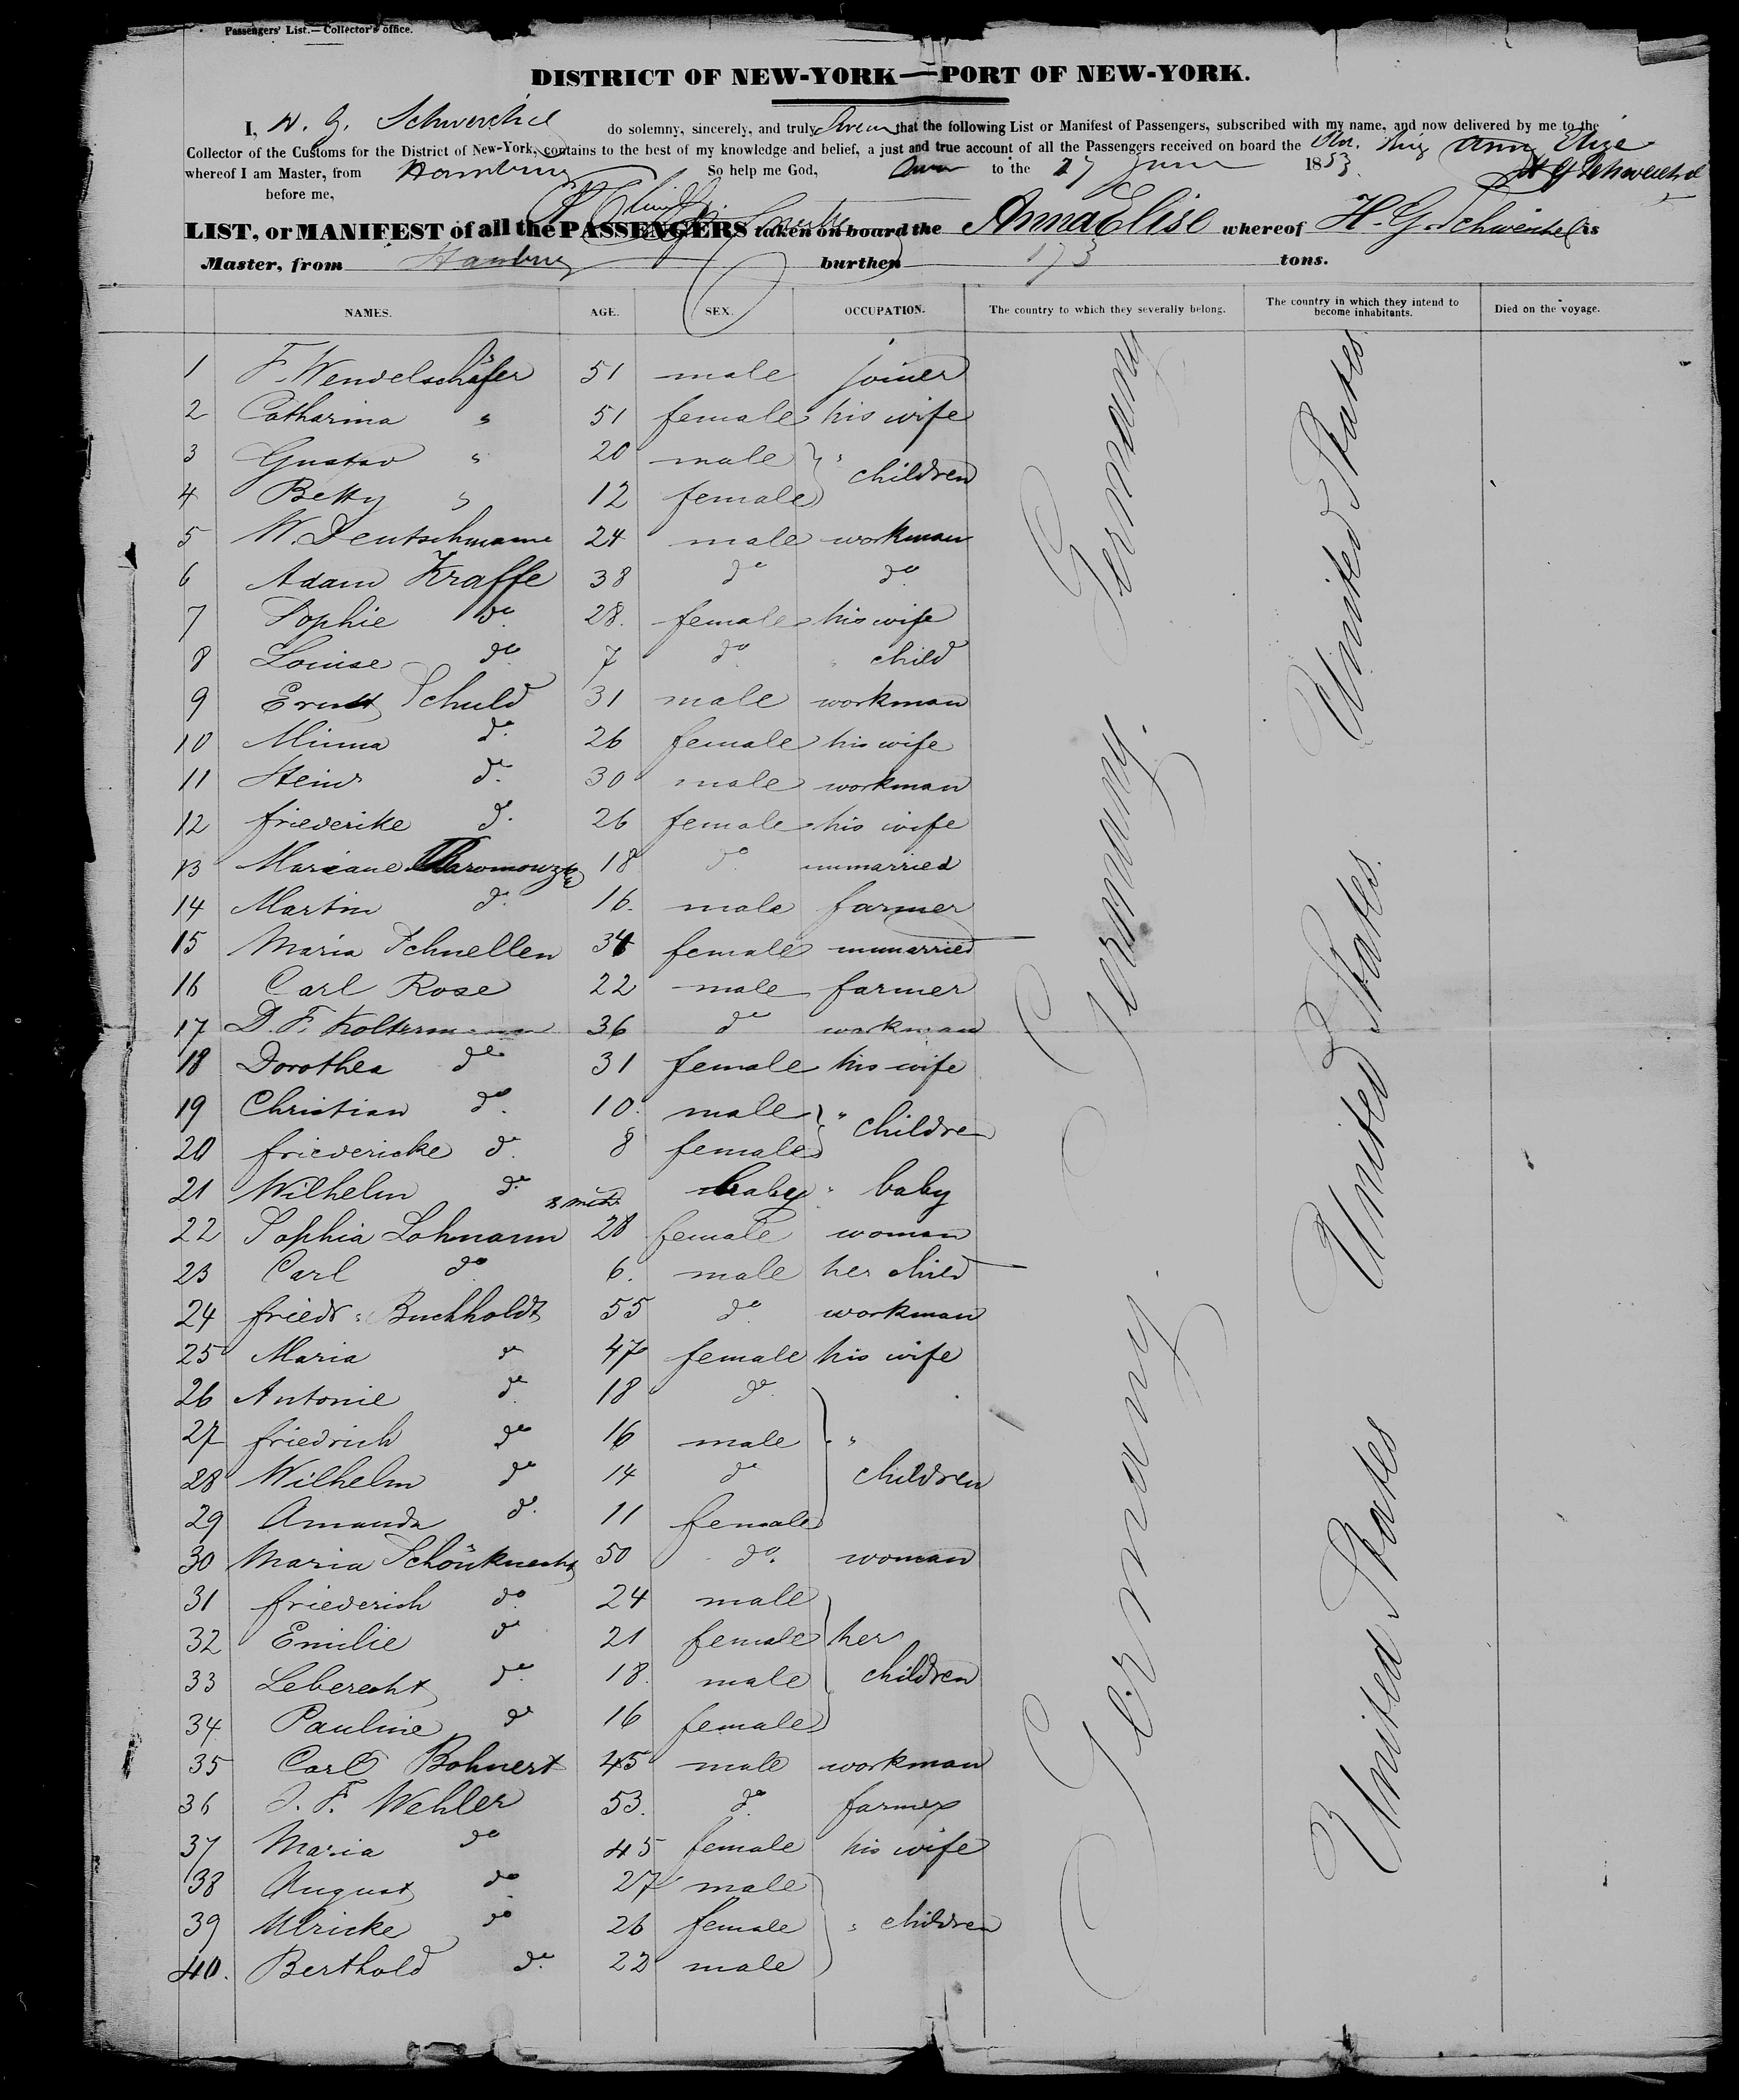 Passengers' List.—Collector's office.
DISTRICT OF NEW-YORK—PORT OF NEW-YORK.
I, H. G. Schwerchel do solemny, sincerely, and truly Swear that the following List or Manifest of Passengers, subscribed with my name, and now delivered by me to the
Collector of the Customs for the District of New-York, contains to the best of my knowledge and belief, a just and true account of all the Passengers received on board the Brig Ann Elize
whereof I am Master, from Hamburg So help me God, to the 27 June 1853. H G Schweichel
before me,
LIST, or MANIFEST of all the PASSENGERS taken on board the Anna Elise whereof H. G. Schweichel is
Master, from Hamburg burthen 173 tons.
NAMES. AGE. SEX. OCCUPATION. The country to which they severally belong. The country in which they intend to become inhabitants. Died on the voyage.
1 F. Wendelschäfer 51 male joiner
2 Catharina " 51 female his wife
3 Gustav " 20 male } "
4 Betty " 12 female } children
5 W. Deutschmann 24 male workman
6 Adam Kraffe 38 do do
7 Sophie do 28. female his wife
8 Louise do 7 do " child
9 Ernst Schuld 31 male workman
10 Minna do. 26 female his wife
11 Heinr do. 30 male workman
12 friederike do. 26 female his wife
13 Mariane 18 do. unmarried
14 Martin do. 16. male farmer
15 Maria Schnellen 34 female unmarried
16 Carl Rose 22 male farmer
17 D. F. Koltermann 36 do workman
18 Dorothea do 31 female his wife
19 Christian do. 10. male } "
20 friedericke do. 8 female } children
21 Wilhelm do. mth baby " baby
22 Sophia Lohmann 28 female woman
23 Carl do 6. male her child
24 friedr: Buchholdt 55 do workman
25 Maria do 47 female his wife
26 Antonie do 18 do.
27 friedrich do 16 male } "
28 Wilhelm do 14 do children
29 Amanda do. 11 female
30 Maria Schönknecht 50 do. woman
31 friederich do 24 male
32 Emilie do 21 female her
33 Leberecht do. 18. male children
34 Pauline do 16 female
35 Carl Bohnert 45 male workman
36 J. F. Wehler 53. do. farmer
37 Maria do 45 female his wife
38 August do. 27 male
39 Ulricke do 26 female " children
40. Berthold do. 22 male
Germany
Germany.
Germany
United States
United States.
United States